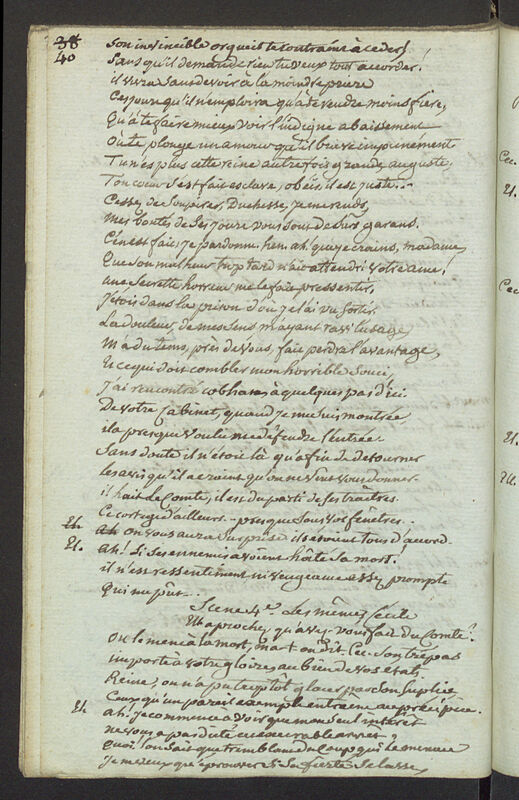 38
40
Son invincible orgueil te contraint à ceder!
Sans qu'il demande rien tu veux tout accorder!
il vivra sans devoir à la moindre priere
Ces jours qu'il n'emploira qu'à te rendre moins fiere,
Qu'à te faire mieux voir l'indigne abaissement
Où te plonge un amour qu'il brave impunément
Tu n'es plus cette reine autrefois grande, auguste,
Ton coeur s'est fait esclave, obéis, il est juste...
Cessez de soupirer, Duchesse, je me rends,
Mes bontés de ses jours vous sont de sûrs garans.
C'en est fait, je pardonne. hen. ah! que je crains, madame,
Que son malheur trop tard n'ait attendri votre ame!
Une secrette horreur me le fait pressentir,
J'etois dans la prison d'où je l'ai vu sortir,
La douleur, de mes sens m'ayant ravi l'usage
M'a du tems, près de vous, fait perdre l'avantage,
Et ce qui doit combler mon horrible souci,
J'ai rencontré cobham à quelques pas d'ici.
De votre Cabinet, quand je me suis montrée
il a presque voulu me défendre l'entrée.
Sans doute il n'étoit là qu'afin de détourner
les avis qu'il a craint qu'on ne vint vous donner
il hait le Comte, il est du parti de ses traîtres
Ce cortege d'ailleurs... presque sous vos fenêtres..
on vous aura surprise ils étoient tous d'accord.
El. Ah! Si ses ennemis avoient hâté sa mort!
il n'est ressentiment ni vengeance assez prompte
Qui me pût...
Scene 4.e Les mêmes Cecile
El. aproche, qu'avez-vous fait du Comte?
On le mene à la mort, m'a-t-on dit. Cec. Son trépas
importe à votre gloire, au bien de vos etats,
Reine, on n'a pu trop tôt glacer par son suplice
Ceux qu'un pareil exemple entraine au précipice.
El. Ah! je commence à voir que mon seul intérêt
ne vous a pas dicté cet execrable arrêt;
Quoi! l'on sait que tremblant de coup qui le menace
Je ne veux qu'éprouver si sa fierté se lasse,